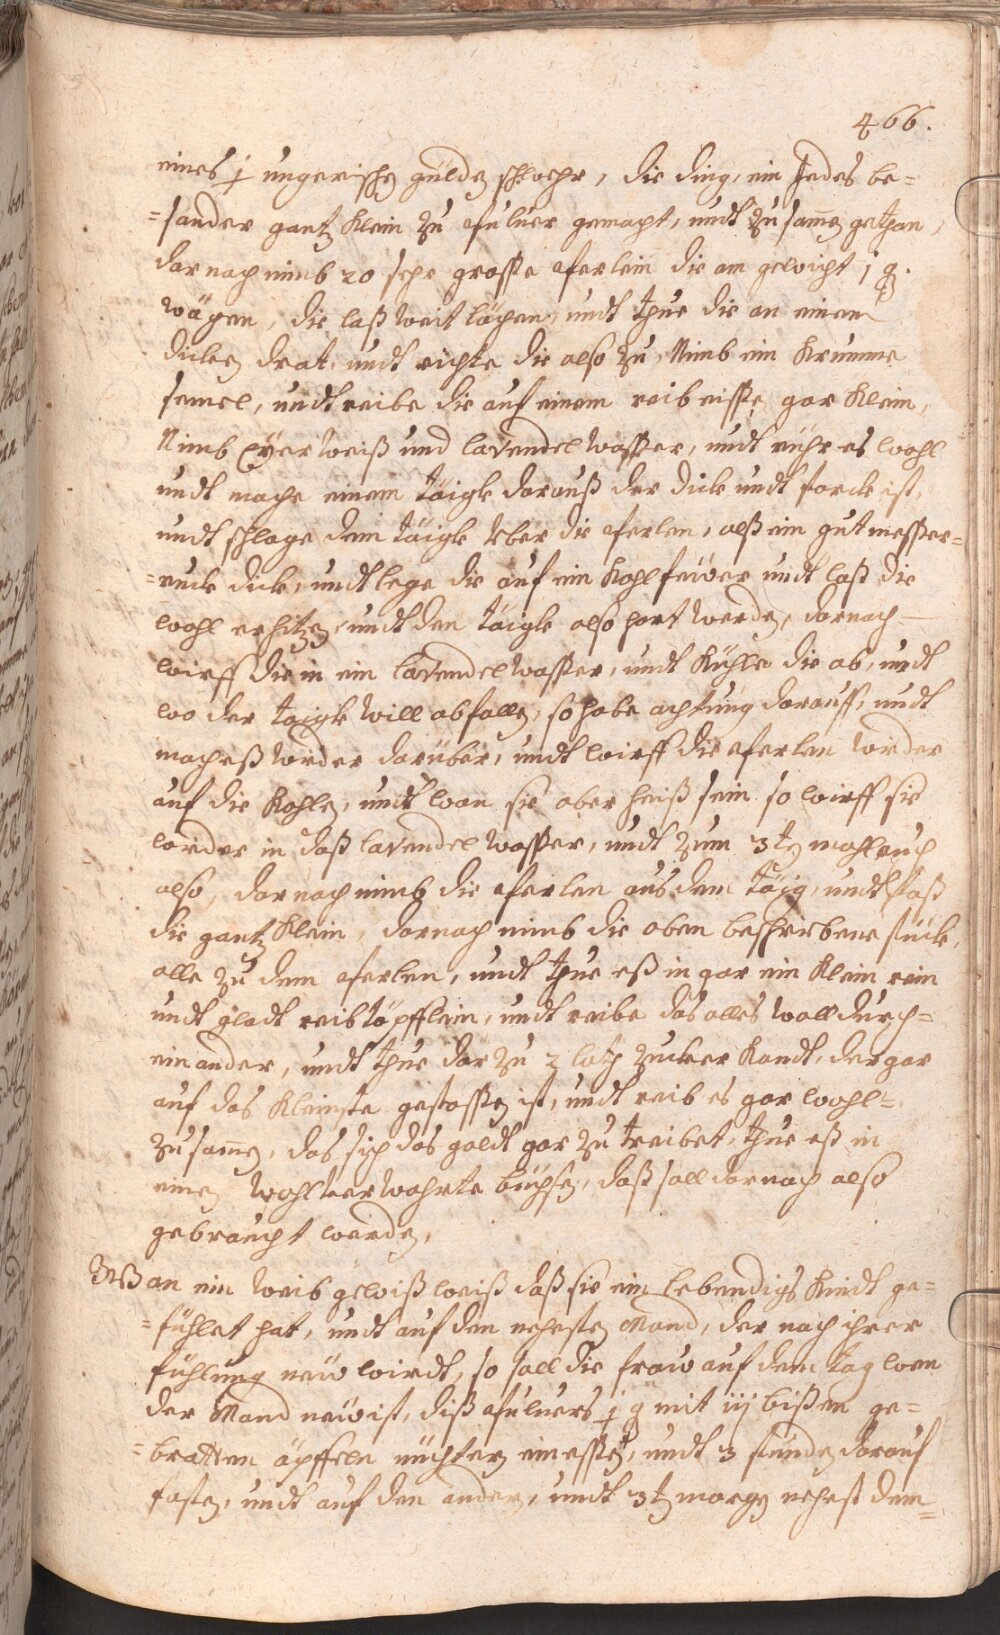 466.
eines j ungerischen gülden schwehr, die ding, ein Jedes be=
=sander gantz klein zu pfuluer gemacht, undt zu samen gethan,
dar nach nimb 20 sehr grosse perlein die am gewicht j q.
wägen, die laß weit löchen, undt thue die an einem
dicken drat, undt richte die also zu, Nimb ein krumme
semel, undt reibe die auf einem reibeissen gar klein,
Nimb Eÿer weiß und lavendel wasser, undt rühr es wohl
undt mache einem täigk darauß der dick undt starck ist,
undt schlage dem täigk über die perlen, alß ein gut messer=
=ruck dick, undt lege die auf ein kohlfeüer undt laß die
wohl erhitzen, undt den täigk also hart werden, darnach
wirff die in ein lavendel wasser, undt kühle die ab, undt
wo der taigk will abfallen, so habe achtung darauff, undt
mach eß wider darüber, undt wirff die perlen wider
auf die kohlen, undt wan sie aber heiß sein so wirff sie
wider in daß lavendel wasser, undt zum 3ten mahl auch
also, dar nach nimb die perlen aus dem täig, undt stoß
die gantz klein, darnach nimb die oben beschribene stück,
alle zu dem perlen, undt thue eß in gar ein klein rein
undt gladt reibtöpfflein, undt reibe das alles woll durch=
einander, undt thue dar zu 2 loth zucker kandt, der gar
auf das kleinste gestossen ist, undt reib es gar wohl=
zusamen, das sich das goldt gar zu treibet, thue eß in
einen wohl verwahrte büchsen, daß soll darnach also
gebraucht werden,
Wan ein weib gewiß weiß daß sie ein lebendigs kindt ge=
=fühlet hat, undt auf den nehesten Mond, der nach ihrer
fühlung neü wirdt, so soll die fraw auf dem tag wen
der Mond neü ist, diß pfuluers j q mit iij bißen ge=
=bratten äpffeln nüchtern einessen, undt 3 stunden darauf
fasten, undt auf den andern, undt 3ten morgen nehest dem=